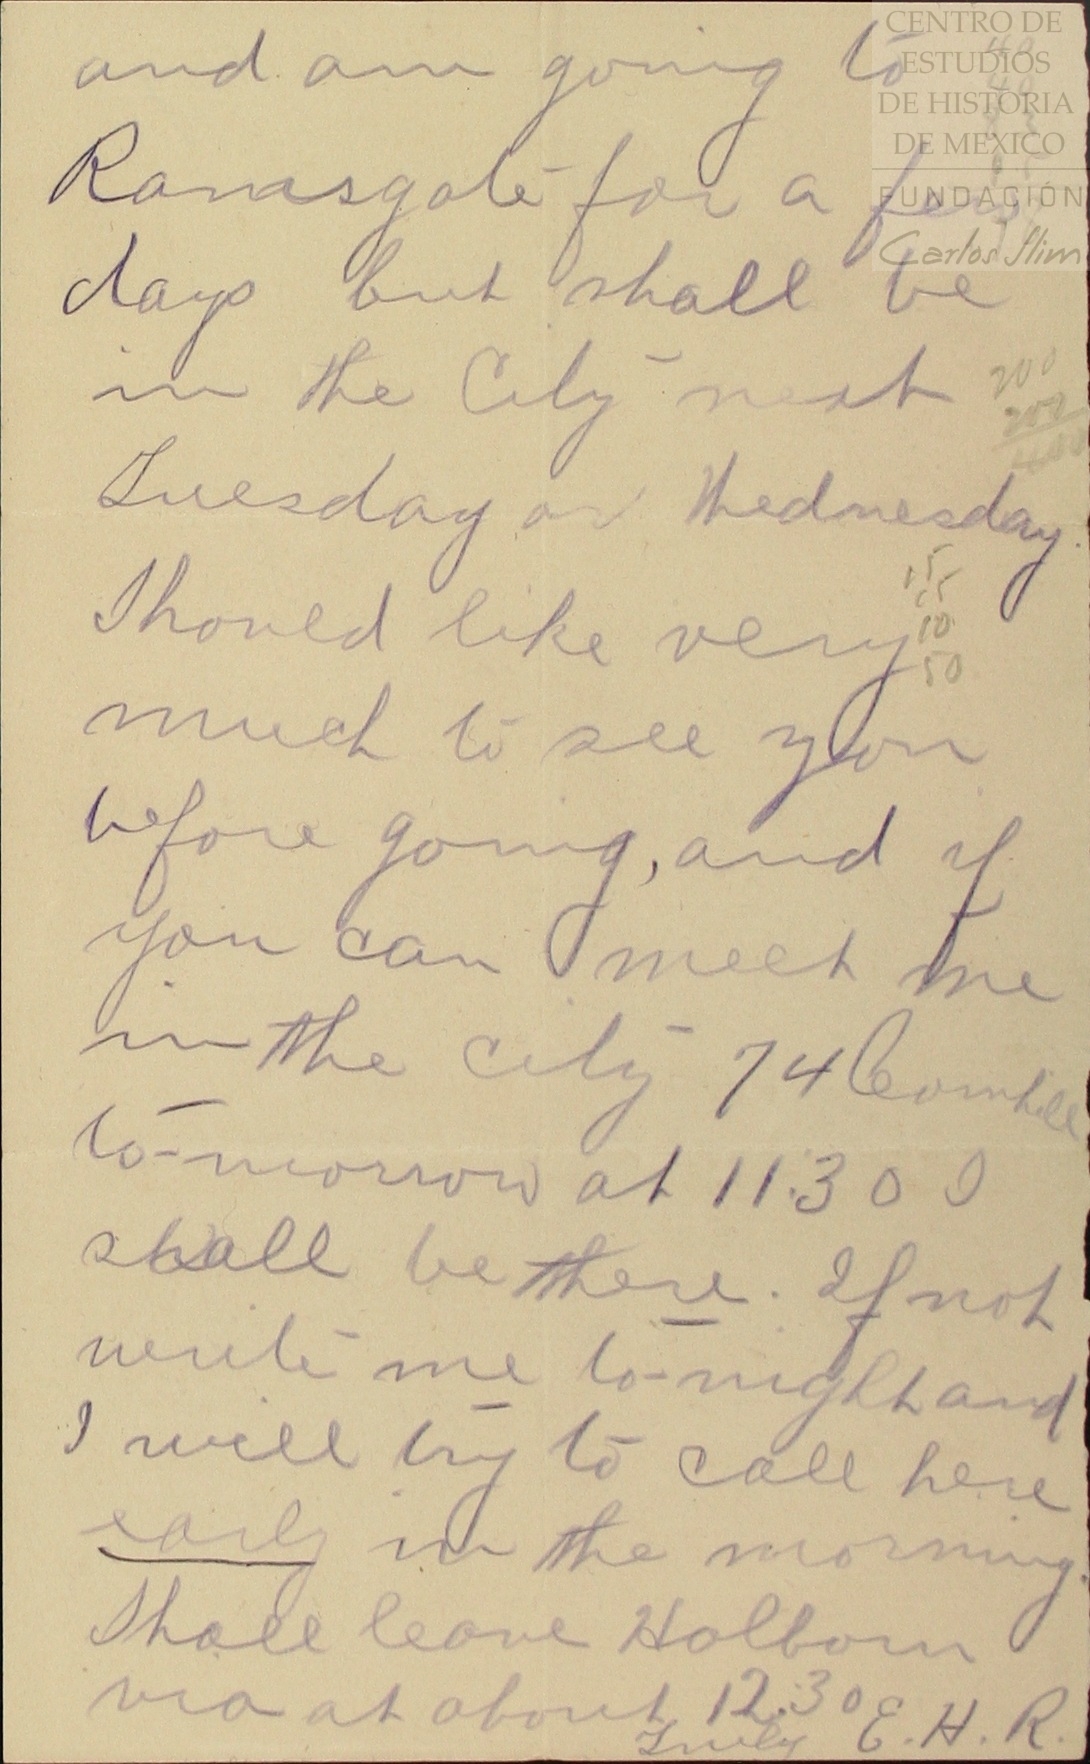 CENTRO DE
ESTUDIOS
DE HISTORIA
DE MEXICO
FUNDACIÓN
Carlos Slim
and am going to
Ramsgate for a few
days but shall be
in the City next
200
200
400
Tuesday or Wednesday.
15
15
10
50
Should like very
much to see you
before going, and if
you can meet me
in the city 74 Cornhill
to-morrow at 11.30 I
shall be there. If not
write me to-night and
I will try to call here
early in the morning.
Shall leave Holborn
via at about 12.30 E. H. R.
Truly